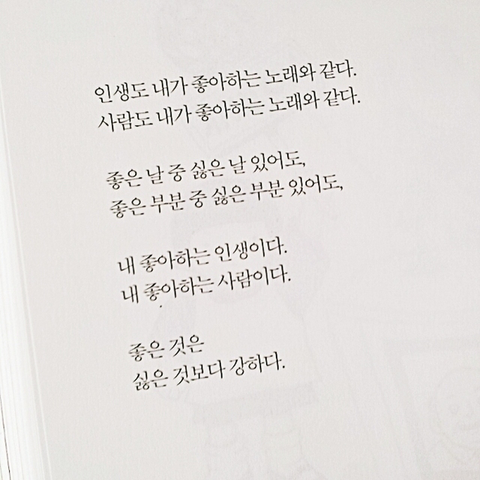 인생도 내가 좋아하는 노래와 같다.
사람도 내가 좋아하는 노래와 같다.
좋은 날 중 싫은 날 있어도,
좋은 부분 중 싫은 부분 있어도,
내 좋아하는 인생이다.
내 좋아하는 사람이다.
좋은 것은
싫은 것보다 강하다.